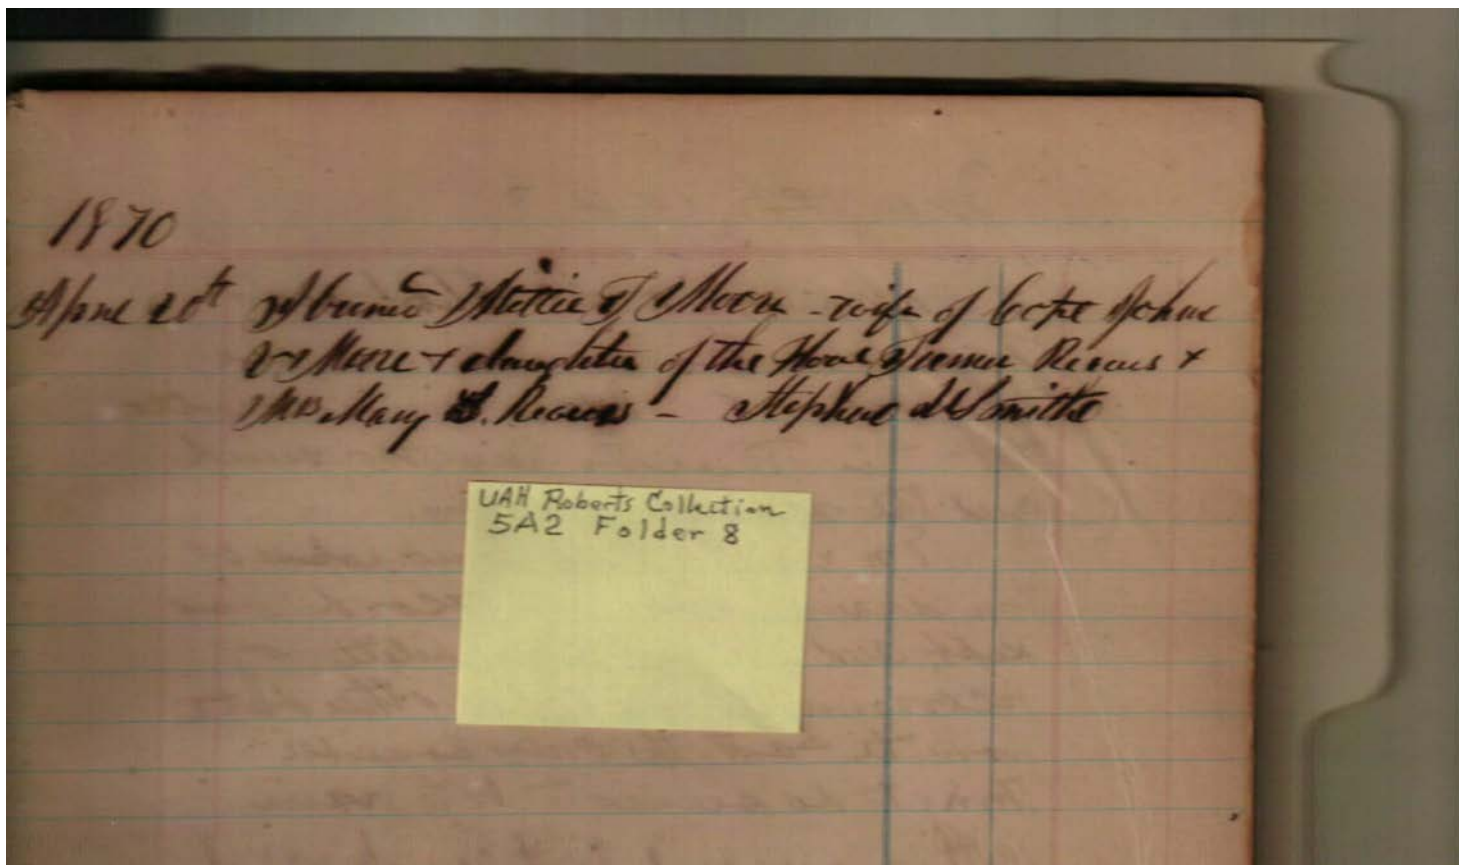 1870
April 20th I buried Mattie F Moore - wife of Capt John
Moore + daughter of the Hon Turner Reavis +
Mrs Mary Reavis - Stephen U Smith
UAH Roberts Collection
5A2 Folder 8